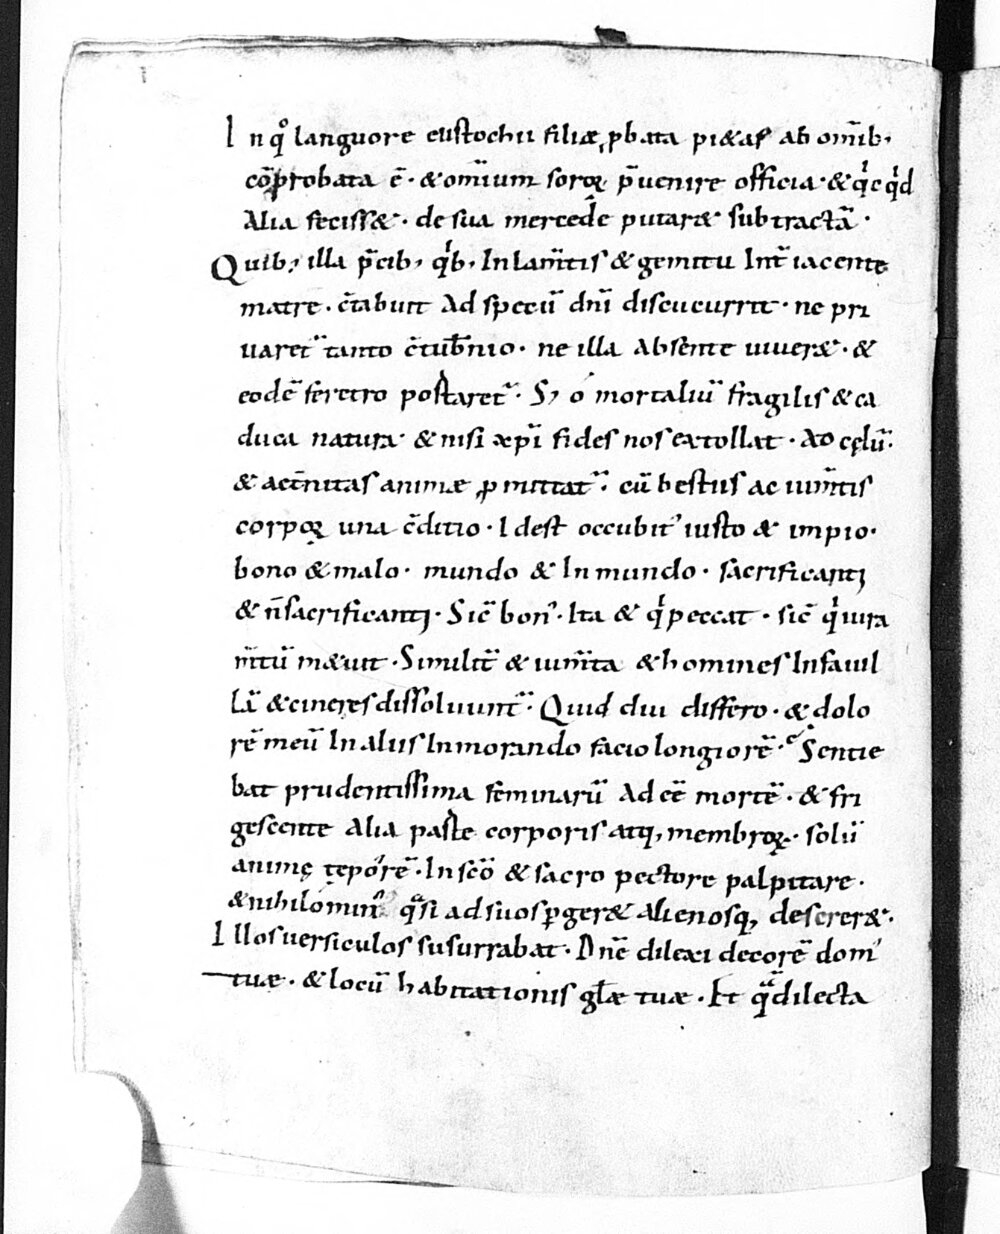 In qͦ languore eustochii filiæ ꝓbata pi&as ab om̅ib,
co̅probata e̅ · & om̅ium soroꝝ p̅uenire officia · & qͥcqͥd
Alia feciss& · de sua mercede putar& subtracta̅ ·
Quib; illa p̅cib, qͥb, Inlam̅tis & gemitu Int̅ iacente
matre · c̅tabuit Ad specu̅ dn̅i discucurrit · ne pri
uaret̅ tanto c̅tub̅nio · ne illa Absente uiuer& · &
eode̅ feretro postaret̅ · S; ó mortaliu̅ fragilis & ca
duca natura · & nisi xp̅i fides nos extollat · AD cęlu̅ ·
& aet̅nitas animæ ꝓmittat̅ · cu̅ bestiis ac ium̅tis
corpoꝝ una c̅ditio · Idest occubit' iusto & impio ·
bono & malo · mundo & Inmundo · sacrificanti
& n̅sacrificanti · Sic̅ bon' · Ita & qͥ peccat · sic̅ qͥ iura
m̅tu̅ m&uit · Similit̅ & ium̅ta & homines Infauil
La̅ & cineres dissoluunt̅ · Quid diu differo · & dolo
re̅ meu̅ In aliis Inmorando facio longiore̅ · Sentie
bat prudentissima feminaru̅ Ad e̅e̅ morte̅ · & fri
gescente Alia paste corporis atq, membroꝝ · solu̅
animę tepóre̅ · In sc̅o & sacro pectore palpitare ·
& nihilómin' qͣsi ad suos ꝑger& alienosq; deserer& ·
Illos uersiculos susurrabat · Dn̅e dilexi decore̅ dom'
tuæ · & locu̅ habitationis gl̅æ tuæ · Et qͣ̅ dilecta